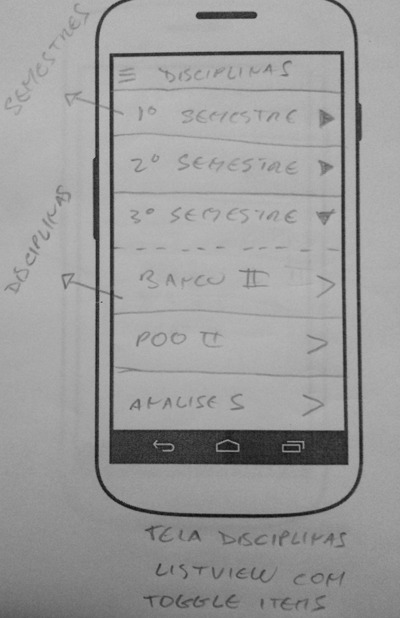 SEMESTRES
DISCIPLINAS
1º SEMESTRE
2º SEMESTRE
3º SEMESTRE
DISCIPLINAS
BANCO II
POO II
ANALISE S
TELA DISCIPLINAS
LISTVIEW COM
TOGGLE ITEMS